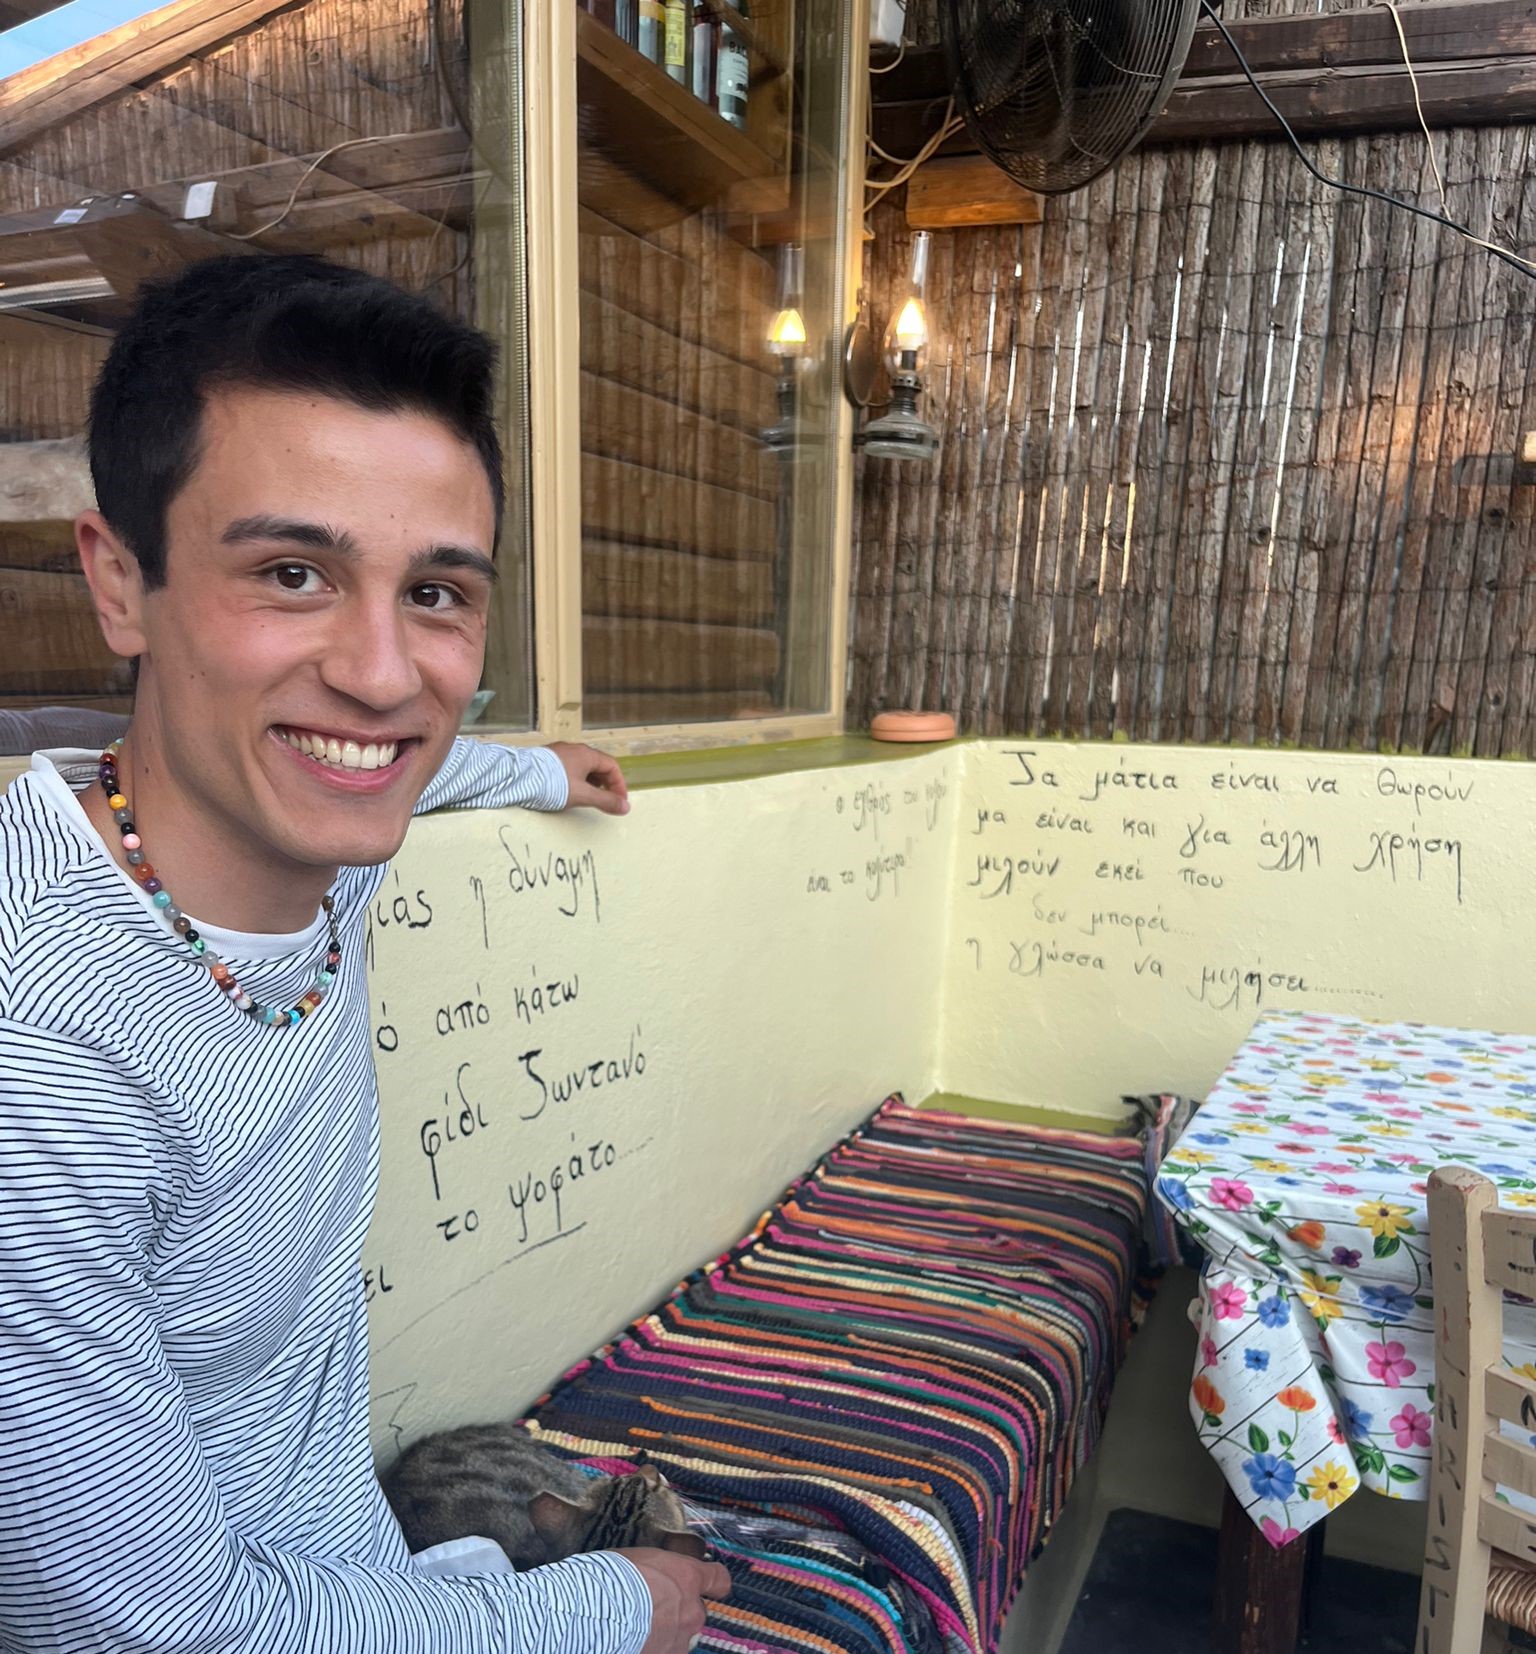 η δύναμη
από κάτω
φίδι ζωντανό
το ψοφάτο....
ο εχθρός του καλού
είναι το καλύτερο!!
Τα μάτια είναι να θωρούν
μα είναι και για άλλη χρήση
μιλούν εκεί που
δεν μπορεί....
η γλώσσα να μιλήσει..........